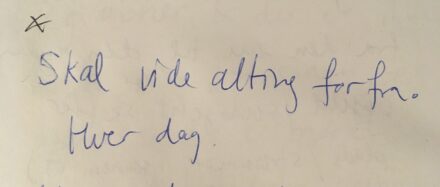 x
Skal vide alting forfra.
Hver dag.